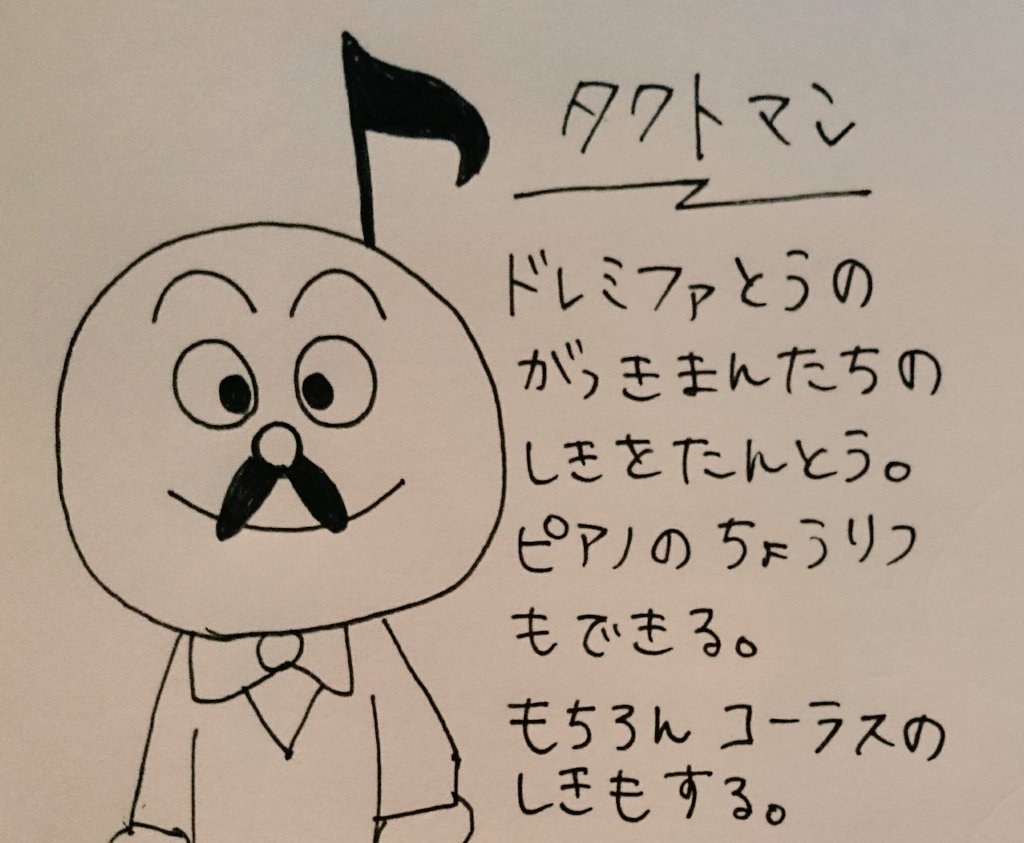 タクトマン
ドレミファとうの
がっきまんたちの
しきをたんとう。
ピアノのちょうりつ
もできる。
もちろん コーラスの
しきもする。